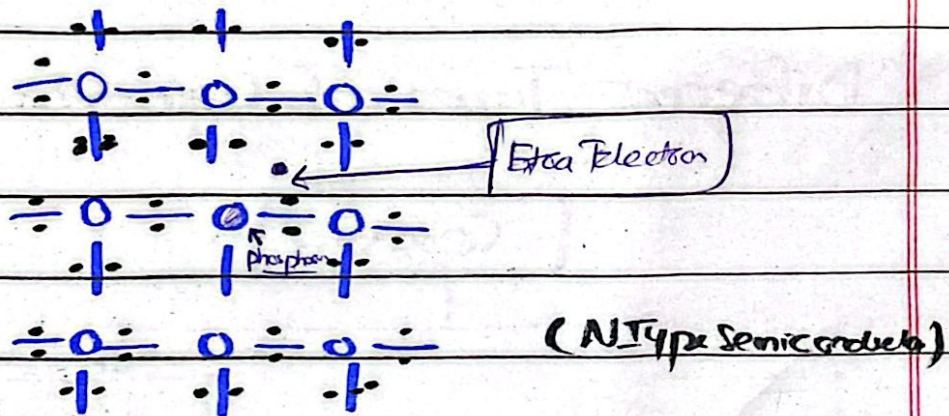 Extra Electron
phosphorus
(N Type Semiconductor)